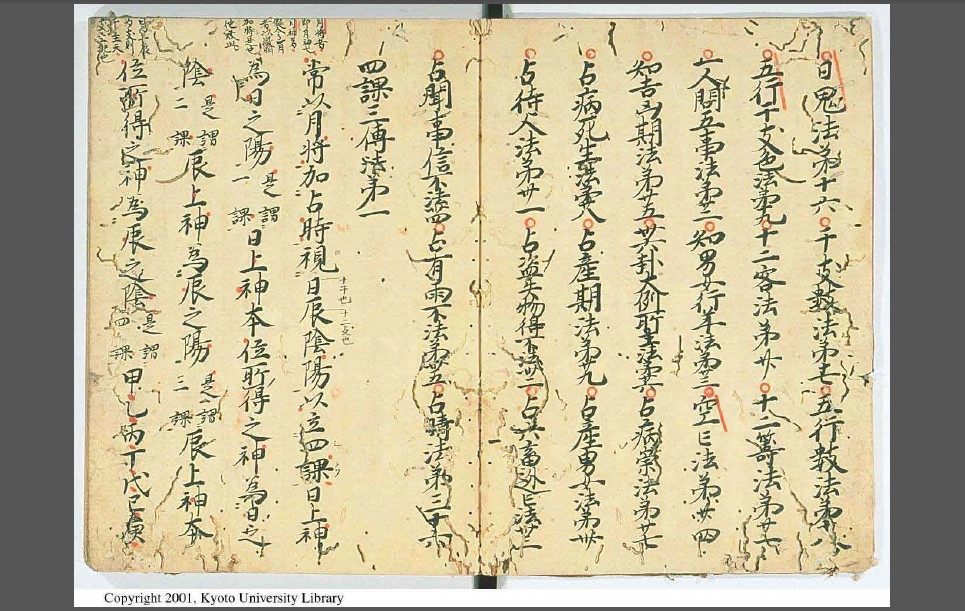 日鬼法第十六 干支數法第十七 五行數法第十八
五行干支色法第十九 十二客法第廿 十二籌法第廿一
一人問五事法第廿二 知男女行年法第廿三 空亡法第廿四
知吉凶期法第廿五 卅六卦大例所主法第廿六 占病祟法第廿七
占病死生法第廿八 占産期法第廿九 占産男女法第卅
占待人法第卅一 占盗失物得不法卅二 占六畜逃亡法卅三
占聞事信不法卅四 占有雨不法第卅五 占晴法第三十六
四課三傳法第一
常以月將加占時視日辰陰陽以立四課日上神
十干也 十二支也
為日之陽 是謂一課 日上神本位所得之神為日之
陰 是謂二課 辰上神為辰之陽 是謂三課 辰上神本
位所得之神為辰之陰 是謂四課 甲乙丙丁戊己庚
Copyright 2001, Kyoto University Library